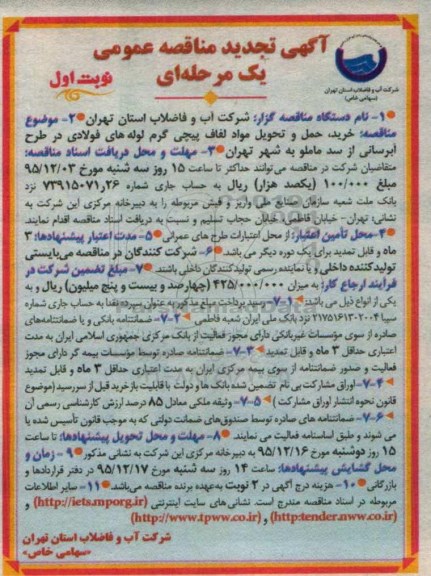 آگهی تجدید مناقصه عمومی
یک مرحله‌ای
نوبت اول
شرکت آب و فاضلاب استان تهران
(سهامی خاص)
۱- نام دستگاه مناقصه گزار: شرکت آب و فاضلاب استان تهران ۲- موضوع
مناقصه: خرید، حمل و تحویل مواد لفاف پیچی گرم لوله های فولادی در طرح
آبرسانی از سد ماملو به شهر تهران ۳- مهلت و محل دریافت اسناد مناقصه:
متقاضیان شرکت در مناقصه می توانند حداکثر تا ساعت ۱۵ روز سه شنبه مورخ ۹۵/۱۲/۰۳
مبلغ ۱۰۰/۰۰۰ (یکصد هزار) ریال به حساب جاری شماره ۷۳۹۱۵۰۷۱٫۲۶ نزد
بانک ملت شعبه سازمان صنایع ملی واریز و فیش مربوطه را به دبیرخانه مرکزی این شرکت به
نشانی: تهران - خیابان فاطمی - خیابان حجاب تسلیم و نسبت به دریافت اسناد مناقصه اقدام نمایند.
۴- محل تأمین اعتبار: از محل اعتبارات طرح های عمرانی ۵- مدت اعتبار پیشنهادها: ۳
ماه و قابل تمدید برای یک دوره دیگر می باشد. ۶- شرکت کنندگان در مناقصه می‌بایستی
تولیدکننده داخلی و یا نماینده رسمی تولیدکنندگان داخلی باشند. ۷- مبلغ تضمین شرکت در
فرآیند ارجاع کار: به میزان ۴۲۵/۰۰۰/۰۰۰ (چهارصد و بیست و پنج میلیون) ریال و به
یکی از انواع ذیل می باشد: ۷-۱- رسید پرداخت مبلغ مذکور به عنوان سپرده نقدا به حساب جاری شماره
سیبا ۲۱۷۵۱۶۱۳۰۲۰۰۴ نزد بانک ملی ایران شعبه فاطمی ۷-۲- ضمانتنامه بانکی و یا ضمانتنامه‌های
صادره از سوی مؤسسات غیربانکی دارای مجوز فعالیت از بانک مرکزی جمهوری اسلامی ایران به مدت
اعتباری حداقل ۳ ماه و قابل تمدید ۷-۳- ضمانتنامه صادره توسط مؤسسات بیمه گر دارای مجوز
فعالیت و صدور ضمانتنامه از سوی بیمه مرکزی ایران به مدت اعتباری حداقل ۳ ماه و قابل تمدید
۷-۴- اوراق مشارکت بی نام تضمین شده بانک ها و دولت با قابلیت بازخرید قبل از سررسید (موضوع
قانون نحوه انتشار اوراق مشارکت) ۷-۵- وثیقه ملکی معادل ۸۵ درصد ارزش کارشناسی رسمی آن
۷-۶- ضمانتنامه های صادره توسط صندوق‌های ضمانت دولتی که به موجب قانون تأسیس شده یا
می شوند و طبق اساسنامه فعالیت می نمایند. ۸- مهلت و محل تحویل پیشنهادها: تا ساعت
۱۵ روز دوشنبه مورخ ۹۵/۱۲/۱۶ به دبیرخانه مرکزی این شرکت به نشانی مذکور ۹- زمان و
محل گشایش پیشنهادها: ساعت ۱۴ روز سه شنبه مورخ ۹۵/۱۲/۱۷ در دفتر قراردادها و
بازرگانی ۱۰- هزینه درج آگهی در ۲ نوبت به‌عهده برنده مناقصه می‌باشد. ۱۱- سایر اطلاعات
مربوطه در اسناد مناقصه مندرج است. نشانی های سایت اینترنتی (http://iets.mporg.ir) و
(http:tender.nww.co.ir) و (http://www.tpww.co.ir)
شرکت آب و فاضلاب استان تهران
«سهامی خاص»